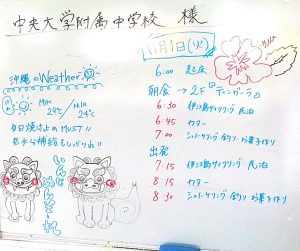 中央大学附属中学校 様
11月1日(火)
沖縄のWeather
MAX 29℃ / MIN 24℃
日焼け止めMUST!!
水分補給もしっかりね!!
めんそーれ
6:00 起床
朝食 → 2F『ティンガーラ』
6:30 伊江島サイクリング・民泊
6:45 カヌー
7:00 シュノーケリング・釣り・お菓子作り
出発
7:15 伊江島サイクリング・民泊
8:15 カヌー
8:30 シュノーケリング・釣り・お菓子作り